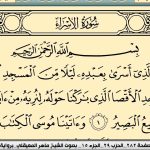 سُورَةُ الإِسْرَاءِ
بِسْمِ اللَّهِ الرَّحْمَٰنِ الرَّحِيمِ
الَّذِي أَسْرَىٰ بِعَبْدِهِ لَيْلًا مِّنَ الْمَسْجِدِ
الْأَقْصَا الَّذِي بَارَكْنَا حَوْلَهُ لِنُرِيَهُ مِنْ
الْبَصِيرُ ١ وَآتَيْنَا مُوسَى الْكِتَابَ
صفحة ٢٨٢ ـ الحزب ٢٩ ـ الجزء ١٥ ـ بصوت الشيخ ماهر المعيقلي ـ برواية